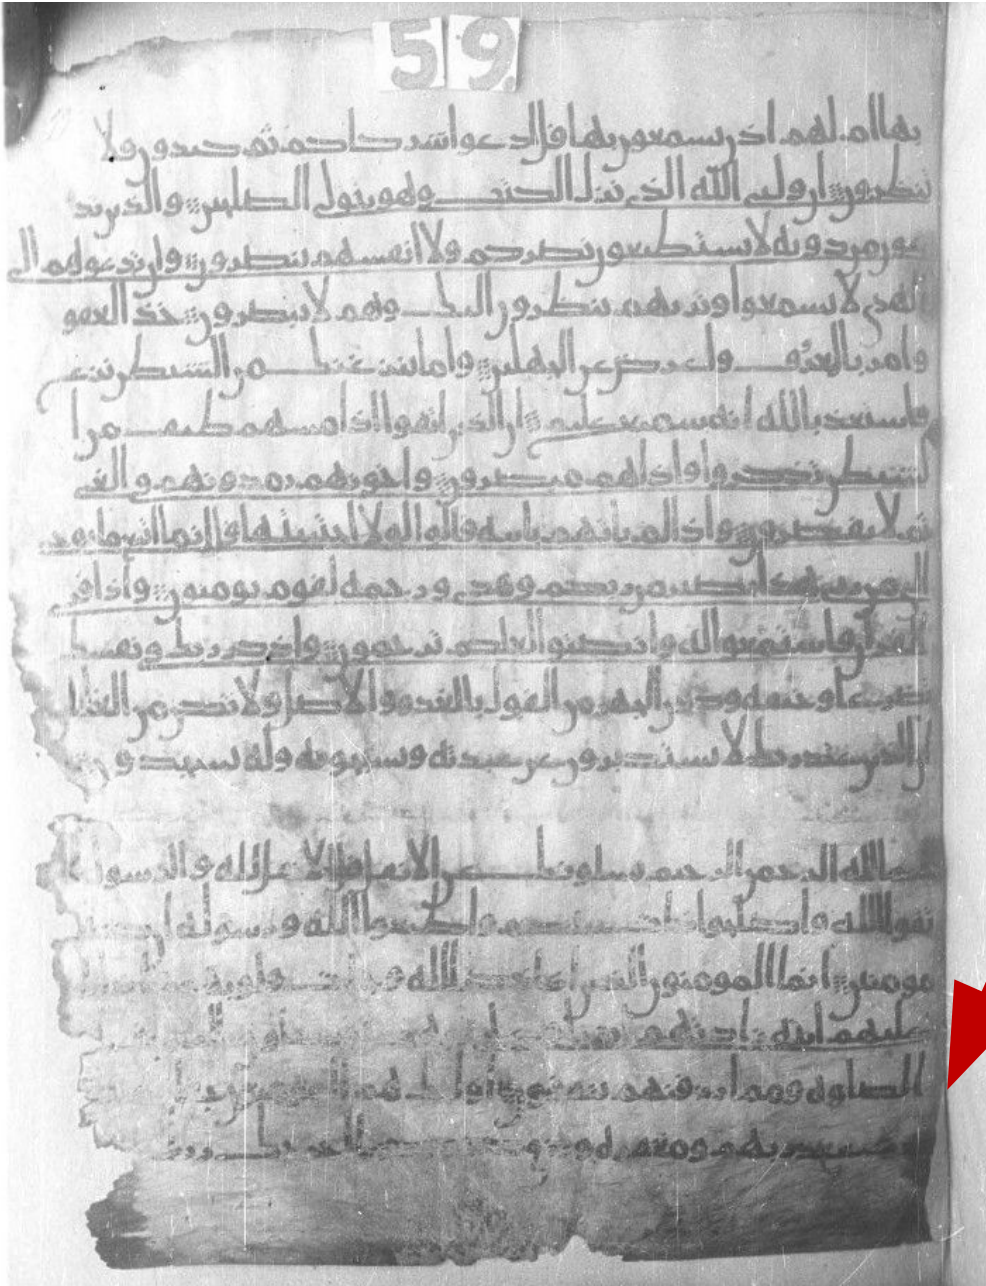 59
بها ام لهم اذن يسمعون بها قل ادعوا شركاكم ثم كيدون ولا
تنظرون ان ولي الله الذي نزل الكتب وهو يتولى الصلحين والذين تد
عون من دونه لا يستطيعون نصركم ولا انفسهم ينصرون وان تدعوهم الى
الهدى لا يسمعوا وتريهم ينظرون اليك وهم لا يبصرون خذ العفو
وامر بالعرف واعرض عن الجهلين واما ينزغنك من الشيطن نزغ
فاستعذ بالله انه سميع عليم ان الذين اتقوا اذا مسهم طيف من ا
لشيطن تذكروا فاذا هم مبصرون واخونهم يمدونهم في الغي
ثم لا يقصرون واذا لم تاتهم بايه قالوا لولا اجتبيتها قل انما اتبع ما يوحى
الي من ربي هذا بصير من ربكم وهدى ورحمه لقوم يومنون واذا قرى
القران فاستمعوا له وانصتوا لعلكم ترحمون واذكر ربك في نفسك
تضرعا وخيفه ودون الجهر من القول بالغدو والاصل ولا تكن من الغفلـ
ان الذين عند ربك لا يستكبرون عن عبدته ويسبحونه وله يسجدون
بسم الله الرحمن الرحيم يسلونك عن الانفل قل الانفل لله والرسول
تقوا الله واصلحوا ذات بينكم واطيعوا الله ورسوله ان كنتم
مومنين انما المومنون الذين اذا ذكر الله وجلت قلوبهم
عليهم ايته زادتهم ايمنا وعلى ربهم
الصلوه ومما رزقنهم ينفقون اولئك هم
عند ربهم ومغفره ورزق ربك